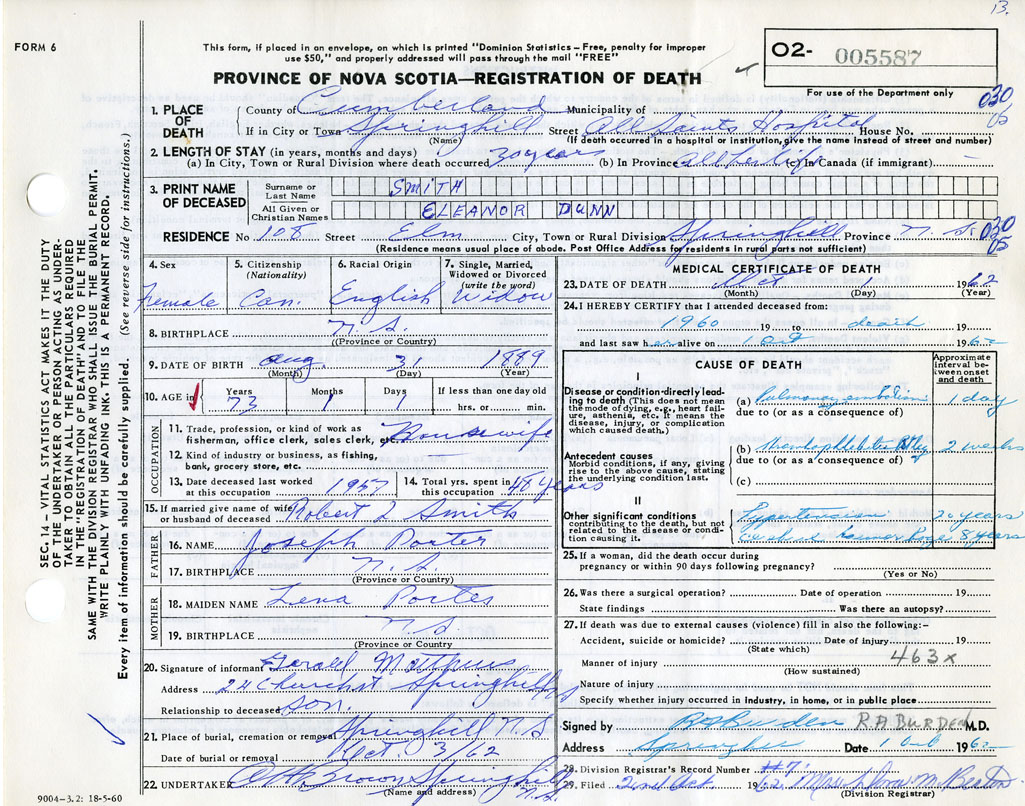 13.
FORM 6
This form, if placed in an envelope, on which is printed "Dominion Statistics – Free, penalty for improper
use $50," and properly addressed will pass through the mail "FREE"
PROVINCE OF NOVA SCOTIA—REGISTRATION OF DEATH
O2- 005587
For use of the Department only
1. PLACE OF DEATH
County of Cumberland Municipality of
If in City or Town Springhill Street All Saints Hospital House No.
(Name) (If death occurred in a hospital or institution, give the name instead of street and number)
030
05
2. LENGTH OF STAY (in years, months and days)
(a) In City, Town or Rural Division where death occurred 30 years (b) In Province all her life (c) In Canada (if immigrant)
3. PRINT NAME OF DECEASED
Surname or Last Name SMITH
All Given or Christian Names ELEANOR DUNN
RESIDENCE No 108 Street Elm City, Town or Rural Division Springhill Province N.S.
(Residence means usual place of abode. Post Office Address for residents in rural parts not sufficient)
030
05
4. Sex Female
5. Citizenship (Nationality) Can.
6. Racial Origin English
7. Single, Married, Widowed or Divorced (write the word) Widow
8. BIRTHPLACE N.S.
(Province or Country)
9. DATE OF BIRTH Aug. 31 1889
(Month) (Day) (Year)
10. AGE in Years 73 Months 1 Days 1 If less than one day old hrs. or min.
OCCUPATION
11. Trade, profession, or kind of work as
fisherman, office clerk, sales clerk, etc. Housewife
12. Kind of industry or business, as fishing,
bank, grocery store, etc.
13. Date deceased last worked at this occupation 1957
14. Total yrs. spent in this occupation 48 years
15. If married give name of wife or husband of deceased Robert L Smith
FATHER
16. NAME Joseph Porter
17. BIRTHPLACE N.S.
(Province or Country)
MOTHER
18. MAIDEN NAME Lena Porter
19. BIRTHPLACE N.S
(Province or Country)
20. Signature of informant Gerald
Address 24 Church St Springhill NS
Relationship to deceased son.
21. Place of burial, cremation or removal Springhill N.S
Date of burial or removal Oct. 3/62
22. UNDERTAKER Brown Springhill N.S.
(Name and address)
9004–3.2: 18-5-60
MEDICAL CERTIFICATE OF DEATH
23. DATE OF DEATH Oct 1 1962
(Month) (Day) (Year)
24. I HEREBY CERTIFY that I attended deceased from:
1960 19 to death 19
and last saw her alive on 1 Oct 1962
CAUSE OF DEATH
Approximate interval between onset and death
I
Disease or condition directly leading to death (This does not mean the mode of dying, e.g., heart failure, asthenia, etc. It means the disease, injury, or complication which caused death.)
(a) Pulmonary embolism 1 day
due to (or as a consequence of)
Antecedent causes
Morbid conditions, if any, giving rise to the above cause, stating the underlying condition last.
(b) 2 weeks
due to (or as a consequence of)
(c)
II
Other significant conditions
contributing to the death, but not related to the disease or condition causing it.
Hypertension 20 years
8 years
25. If a woman, did the death occur during
pregnancy or within 90 days following pregnancy?
(Yes or No)
26. Was there a surgical operation? Date of operation 19
State findings Was there an autopsy?
27. If death was due to external causes (violence) fill in also the following:–
Accident, suicide or homicide? Date of injury 19
(State which)
463x
Manner of injury
(How sustained)
Nature of injury
Specify whether injury occurred in industry, in home, or in public place
Signed by R A Burden R.A. BURDEN M.D.
Address Springhill Date 1 Oct 1962
28. Division Registrar's Record Number #7
29. Filed 2nd Oct 1962
(Division Registrar)
SEC. 14 – VITAL STATISTICS ACT MAKES IT THE DUTY
OF THE UNDERTAKER OR PERSON ACTING AS UNDER-
TAKER TO OBTAIN ALL THE PARTICULARS REQUIRED
IN THE "REGISTRATION OF DEATH" AND TO FILE THE
SAME WITH THE DIVISION REGISTRAR WHO SHALL ISSUE THE BURIAL PERMIT.
WRITE PLAINLY WITH UNFADING INK. THIS IS A PERMANENT RECORD.
Every item of information should be carefully supplied. (See reverse side for instructions.)